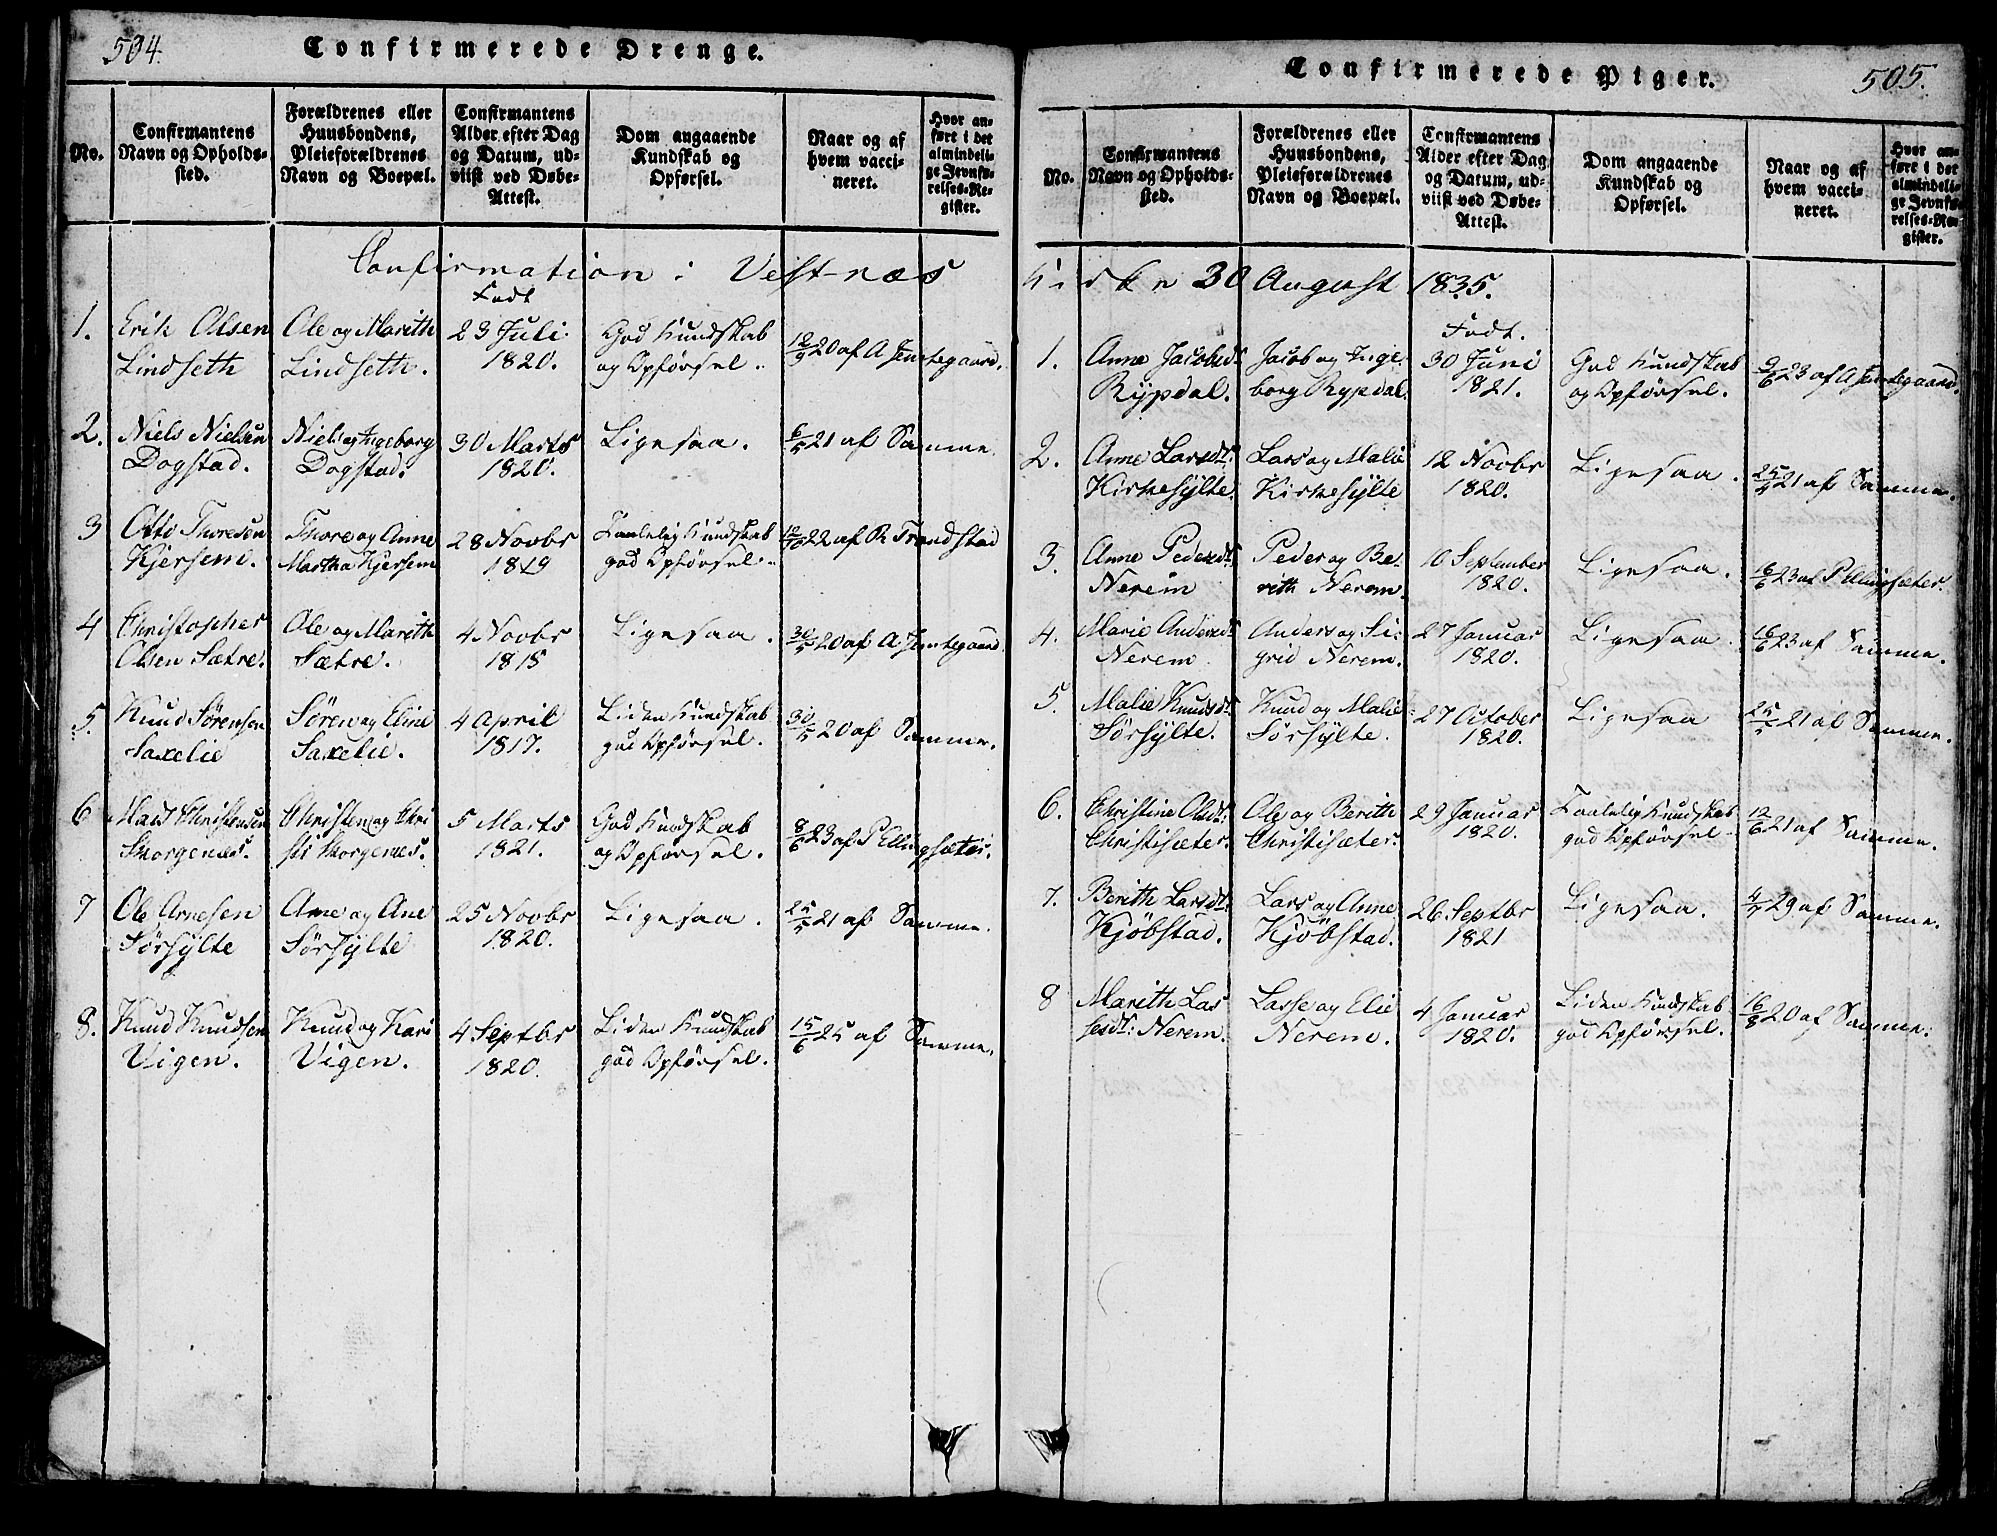 504.
Confirmerede Drenge.
No.
Confirmantens
Navn og Opholds-
sted.
Forældrenes eller
Huusbondens,
Pleieforældrenes
Navn og Boepæl.
Confirmantens
Alder efter Dag
og Datum, ud-
viist ved Døbe-
Attest.
Dom angaaende
Kundskab og
Opførsel.
Naar og af
hvem vacci-
neret.
Hvor an-
ført i det
almindeli-
ge Jevnfø-
relses-Re-
gister.
Confirmation i Vestnæs
Født
1.
Erik Olsen
Lindseth
Ole og Marith
Lindseth.
23 Juli
1820.
God Kundskab
og Opførsel.
12/9 20 af A Jemtegaard.
2.
Niels Nielsen
Dogstad.
Niels og Ingeborg
Dogstad.
30 Marts
1820.
Ligesaa.
6/5 21 af Samme.
3
Otto Thoresen
Kjersem.
Thore og Anne
Martha Kjersem
28 Novbr
1819
Taalelig Kundskab
god Opførsel.
12/10 22 af R Trondstad
4
Christopher
Olsen Sætre.
Ole og Marith
Sætre.
4 Novbr
1818
Ligesaa.
30/5 20 af A Jemtegaard
5.
Knud Sørensen
Saxelie
Søren og Eline
Saxelie.
4 April
1817.
Liden Kundskab
god Opførsel.
30/5 20 af Samme.
6
Mads Christensen
Skorgenæs.
Christen og Chri
sti Skorgenæs.
5 Marts
1821.
God Kundskab
og Opførsel.
8/6 23 af P Ellingsæter.
7
Ole Arnesen
Sørsylte
Arne og Ane
Sørsylte
25 Novbr
1820.
Ligesaa.
25/5 21 af Samme.
8.
Knud Knudsen
Vigen.
Knud og Kari
Vigen.
4 Septbr
1820.
Liden Kundskab
god Opførsel.
15/6 25 af Samme.
Confirmerede Piger.
505.
No.
Confirmantens
Navn og Opholds-
sted.
Forældrenes eller
Huusbondens,
Pleieforældrenes
Navn og Boepæl.
Confirmantens
Alder efter Dag
og Datum, ud-
viist ved Døbe-
Attest.
Dom angaaende
Kundskab og
Opførsel.
Naar og af
hvem vacci-
neret.
Hvor an-
ført i det
almindeli-
ge Jevnfø-
relses-Re-
gister.
Kirke 30 August 1835.
Født.
1.
Anne Jacobsdt
Rypdal.
Jacob og Inge-
borg Rypdal.
30 Juni
1821.
God Kundskab
og Opførsel.
9/6 23 af A Jemtegaard.
2.
Anne Larsdt:
Kirkesylte.
Lars og Malie
Kirkesylte
12 Novbr
1820.
Ligesaa.
25/4 21 af Samme.
3.
Anne Pedersdt
Nerem
Peder og Be-
rith Nerem.
10 September
1820.
Ligesaa.
16/6 23 af P Ellingsæter.
4.
Marie Andersdt
Nerem
Anders og Si-
grid Nerem.
27 Januar
1820.
Ligesaa.
16/6 23 af Samme.
5.
Malie Knudsdt:
Sørsylte.
Knud og Malie
Sørsylte.
27 October
1820.
Ligesaa
25/5 21 af Samme.
6.
Christine Olsdt:
Christisæter.
Ole og Berith
Christisæter.
29 Januar
1820.
Taalelig Kundskab
god Opførsel.
12/6 21 af Samme.
7.
Berith Larsdt:
Kjöbstad.
Lars og Anne
Kjöbstad.
26 Septbr
1821
Ligesaa.
4/7 29 af Samme.
8
Marith Las
sesdt: Nerem.
Lasse og Elie
Nerem.
4 Januar
1820.
Liden Kundskab
god Opførsel.
16/8 20 af Samme.